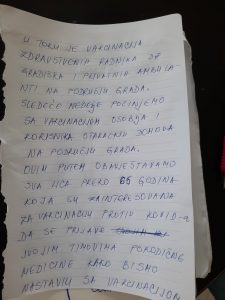 U TOKU JE VAKCINACIJA
ZDRAVSTVENIH RADNIKA DZ
GRADIŠKA I PRIVATNIH AMBULA
NTI NA PODRUČJU GRADA.
SLEDEĆE NEDELJE POČINJEMO
SA VAKCINACIJOM OSOBLJA I
KORISNIKA STARAČKIH DOMOVA
NA PODRUČJU GRADA.
OVIM PUTEM OBAVJEŠTAVAMO
SVA LICA PREKO 65 GODINA
KOJA SU ZAINTERESOVANA
ZA VAKCINACIJU PROTIV KOVID-a
DA SE PRIJAVE
SVOJIM TIMOVIMA PORODIČNE
MEDICINE KAKO BISMO
NASTAVILI SA VAKCINACIJOM